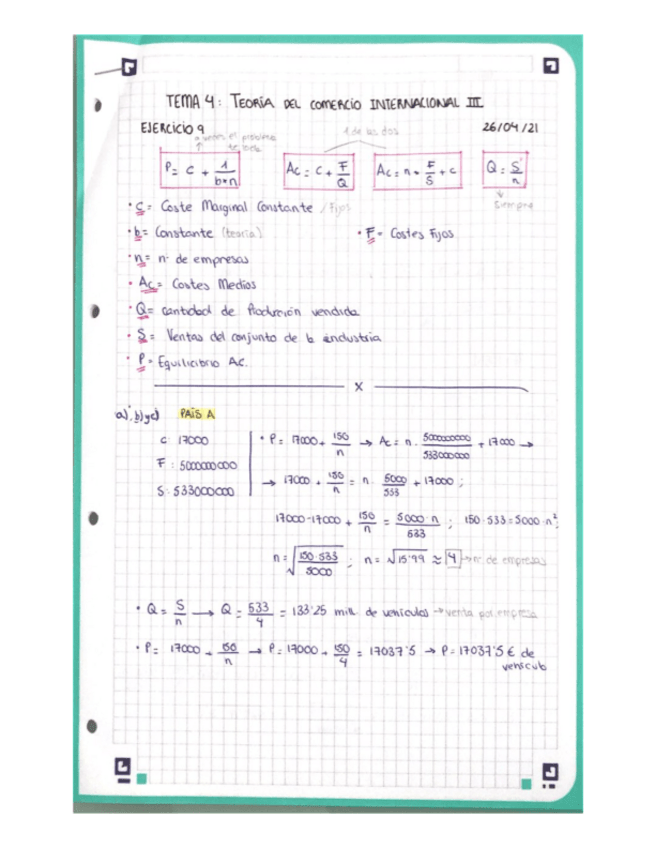 TEMA 4: TEORÍA DEL COMERCIO INTERNACIONAL III
EJERCICIO 9 a veces el problema te lo da 1 de las dos 26/04/21
P = c + 1/b*n Ac = c + F/Q Ac = n * F/S + c Q = S/n
Siempre
· c = Coste Marginal Constante / Fijos
· b = Constante (teoría) · F = Costes Fijos
· n = nº de empresas
· Ac = Costes Medios
· Q = cantidad de Producción vendida
· S = Ventas del conjunto de la industria
· P = Equilicibrio AC.
x
a), b) y c) PAÍS A
c: 17000
F: 5000000000
S: 533000000
· P = 17000 + 150/n → Ac = n · 5000000000/533000000 + 17000 →
→ 17000 + 150/n = n · 5000/533 + 17000 ;
17000 - 17000 + 150/n = 5000·n/533 ; 150·533 = 5000·n² ;
n = √150·533/5000 ; n = √15'99 ≈ 4 → nº de empresas
· Q = S/n → Q = 533/4 = 133'25 mill. de vehículos → venta por empresa
· P = 17000 + 150/n → P = 17000 + 150/4 = 17037'5 → P = 17037'5 € de
vehículo